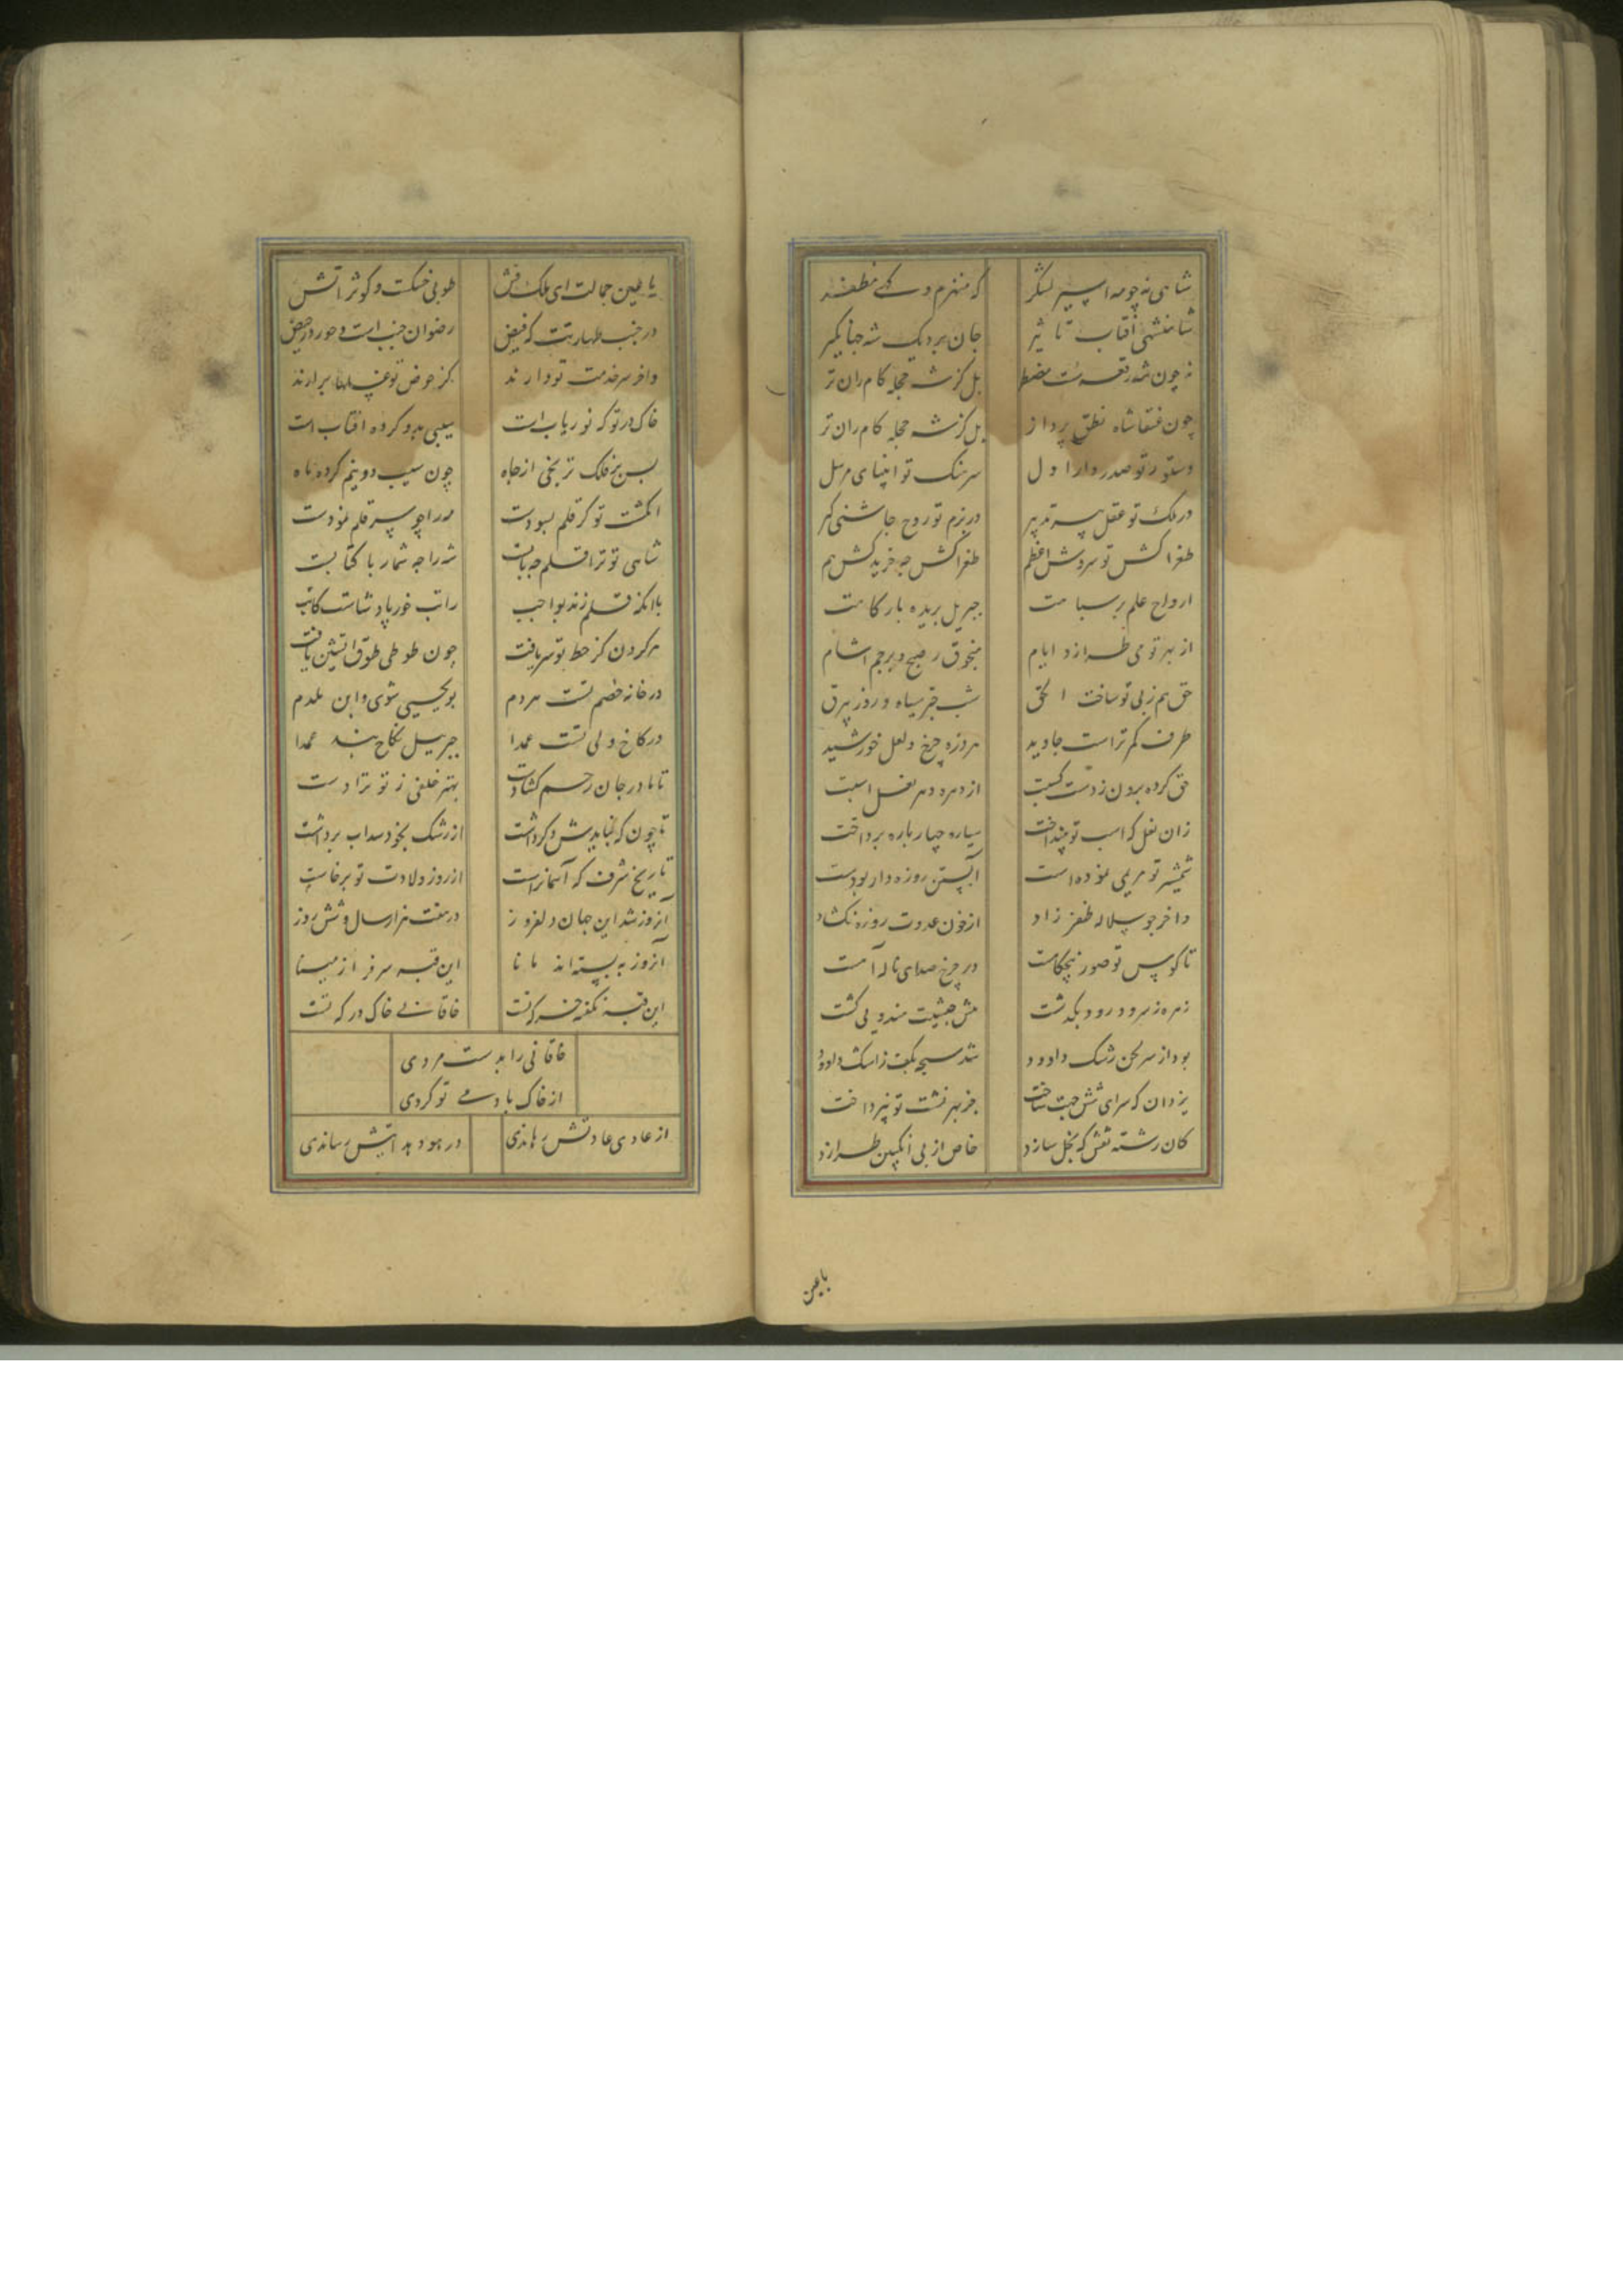 شاهی نه چو مه اسیر لشکر
که منهزم و کهی مظفر
شاهنشهی افتاب تا ثیر
جان بر دیک شه جهانکیر
نه چون شه رقعه مضطر
بل کز شه حجله کام ران تر
چون عنقا شاه نطق پرداز
بل کز شه حجله کام ران تر
دستور تو صدر دار اول
سرهنک تو انبیای مرسل
در ملک تو عقل پیر تدبیر
در بزم تو روح چاشنی کیر
طغرا کش تو سروش اعظم
ارواح علم بر سبا مت
جبریل برید ه بار کا مت
از بهر تو می طرازد ایام
منجوق ز صبح و پرچم از شام
حق هم ز پی تو ساخت ا لحق
شب چتر سیاه و روز بیرق
طرف کمر تراست جاوید
پیروزه چرخ و لعل خورشید
حق کرده برون ز دست کیت
زان نعل که اسب تو بینداخت
سیاره چهار باره پرداخت
شمشیر تو مریمی نموده است
ابستن روزه دار بودست
و اخر چو سلاله ظفر زاد
از خون عدوت روزه بکشاد
تا کوس تو صور پنجکامت
در چرخ صدای ناله آمت
زهره ز سرود رود بکذشت
بود از سر لحن رشک داوود
شد سبحه بکف زاشک داوود
یزدان که سرای شش جهت ساخت
جز بهر نشست تو نپرداخت
کان رشته نقش که نخل سازد
خاص از پی انکبین طرازد
با عین
با عین جمالت ای ملک فش
طوبی خسکت و کوثر اتش
در جنب طهارتت که فیض
رضوان جنب است و حور در حیض
و اخر سر خدمت تو دارند
کز حوض تو غسلها برارند
خاک در تو که نور یاب است
سیبی بدو کرده افتاب است
بس بر فلک ترنجی از جاه
چون سیب دو نیم کرده ماه
انکشت تو کر قلم نسودت
مه را چو سر قلم نمودت
شاهی تو ترا قلم چه بابت
شه را چه شمار با کتابت
بلانکه قلم زند بواجب
راتب خور پادشاست کاتب
هر کردن کز خط تو سر یافت
چون طوطی طوق اتشین یافت
در خانه خصم تست هر دم
بو یحیی شوی و ابن ملدم
در کاخ ولی تست عمدا
جبریل نکاح بند عمدا
تا مادر جان رحم کشادت
بهتر خلفی ز تو نزادست
از رشک بخود سداب برداشت
تاریخ شرف که آسمانراست
از روز ولادت تو برخاست
آنروز شد این جهان دلفروز
در هفت هزار سال و شش روز
آنروز به بسته اند مانا
این قبه سرفراز مینا
خاقانی خاک درکه تست
خاقانی را بدست مردی
از خاک بادمی تو کردی
از عادی عادتش رهاندی
در هود هدایتش رساندی